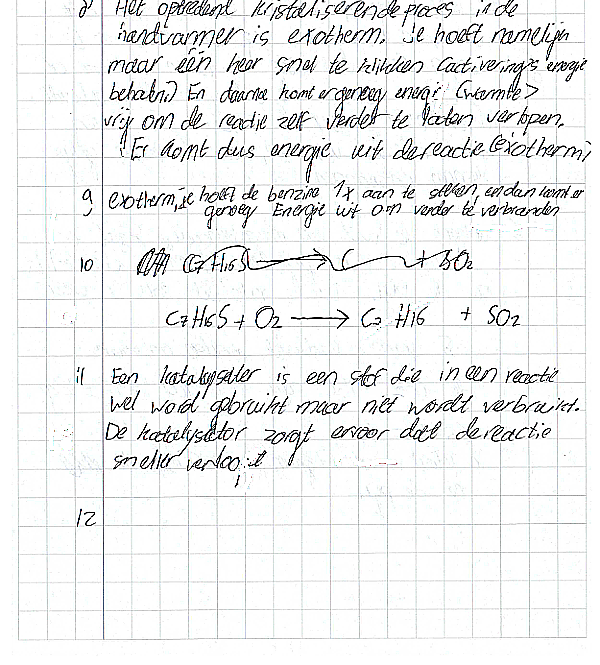 8 Het optredend kristaliserende proces in de
handwarmer is exotherm. Je hoeft namelijk
maar één keer snel te klikken (activerings energie
behalen) En daarna komt er genoeg energi (warmte)
vrij om de reactie zelf verder te laten verlopen.
Er komt dus energie uit de reactie (Exotherm)
9 exotherm, je hoeft de benzine 1x aan te steken, en dan komt er
genoeg Energie uit om verder te verbranden
10 C7H16S → C + SO2
C7H16S + O2 → C7 H16 + SO2
11 Een katalysater is een stof die in een reactie
wel word gebruikt maar niet wordt verbruikt.
De katalysator zorgt ervoor dat de reactie
sneller verloopt
12